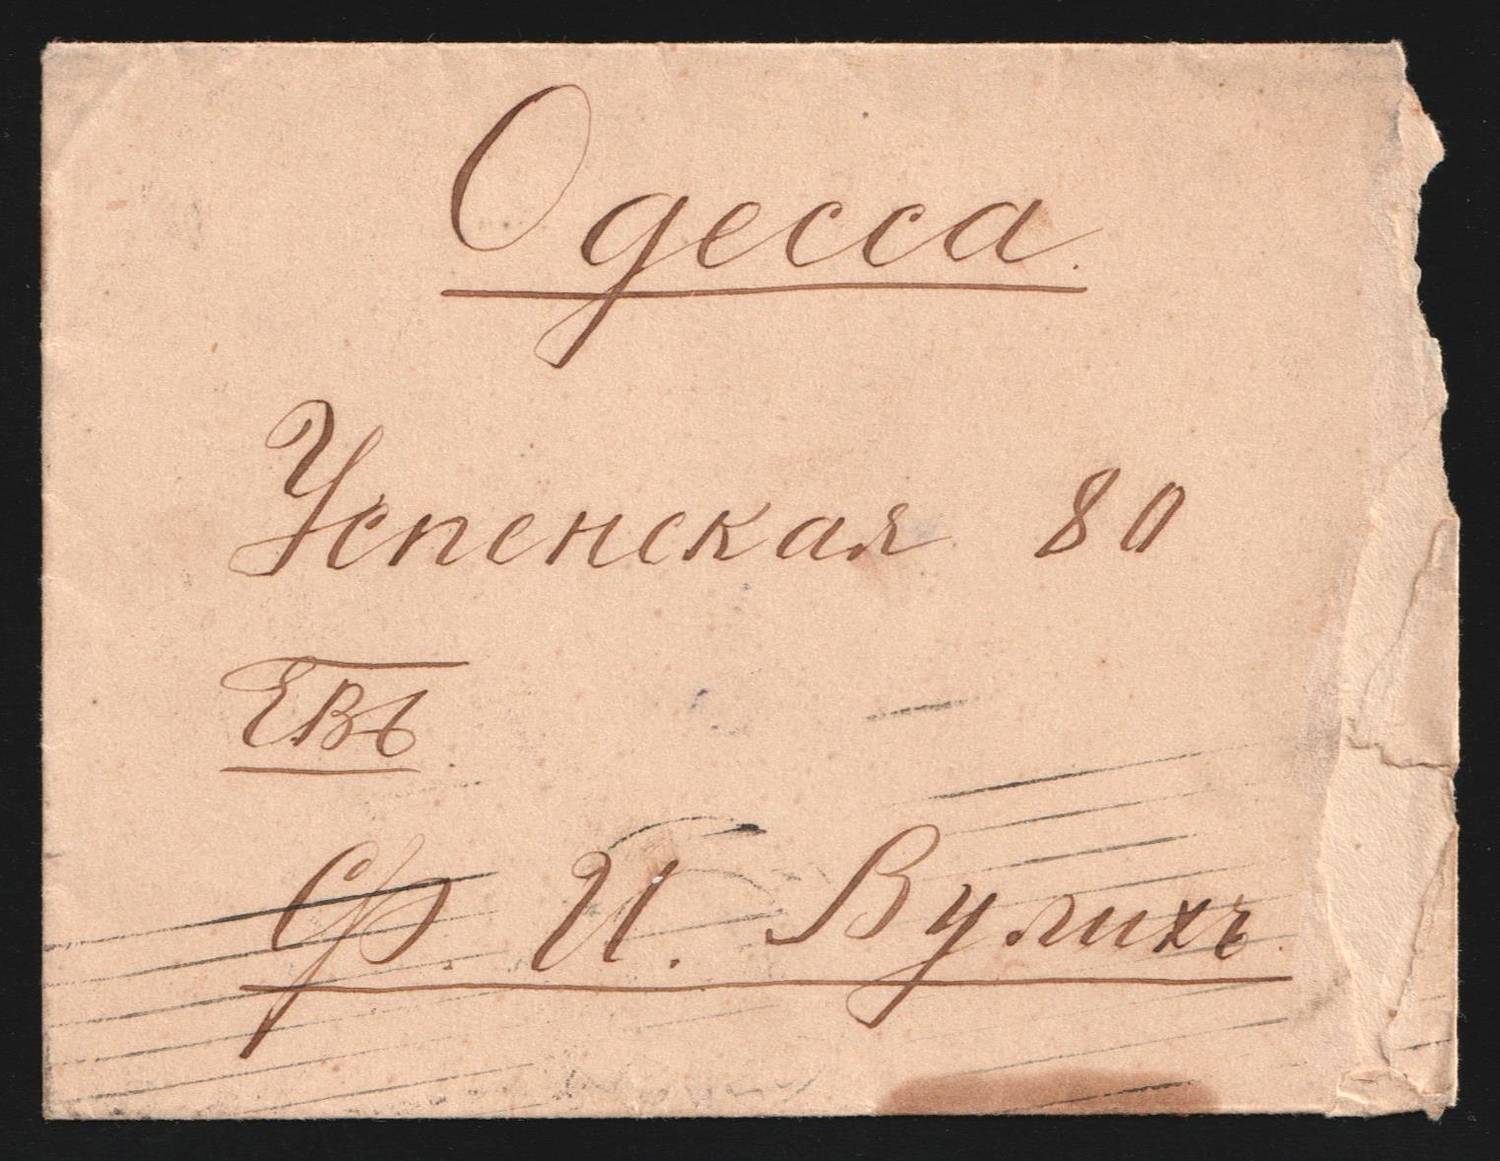 Одесса.
Успенская 80
ЕВБ
Ф. И. Вулихъ.